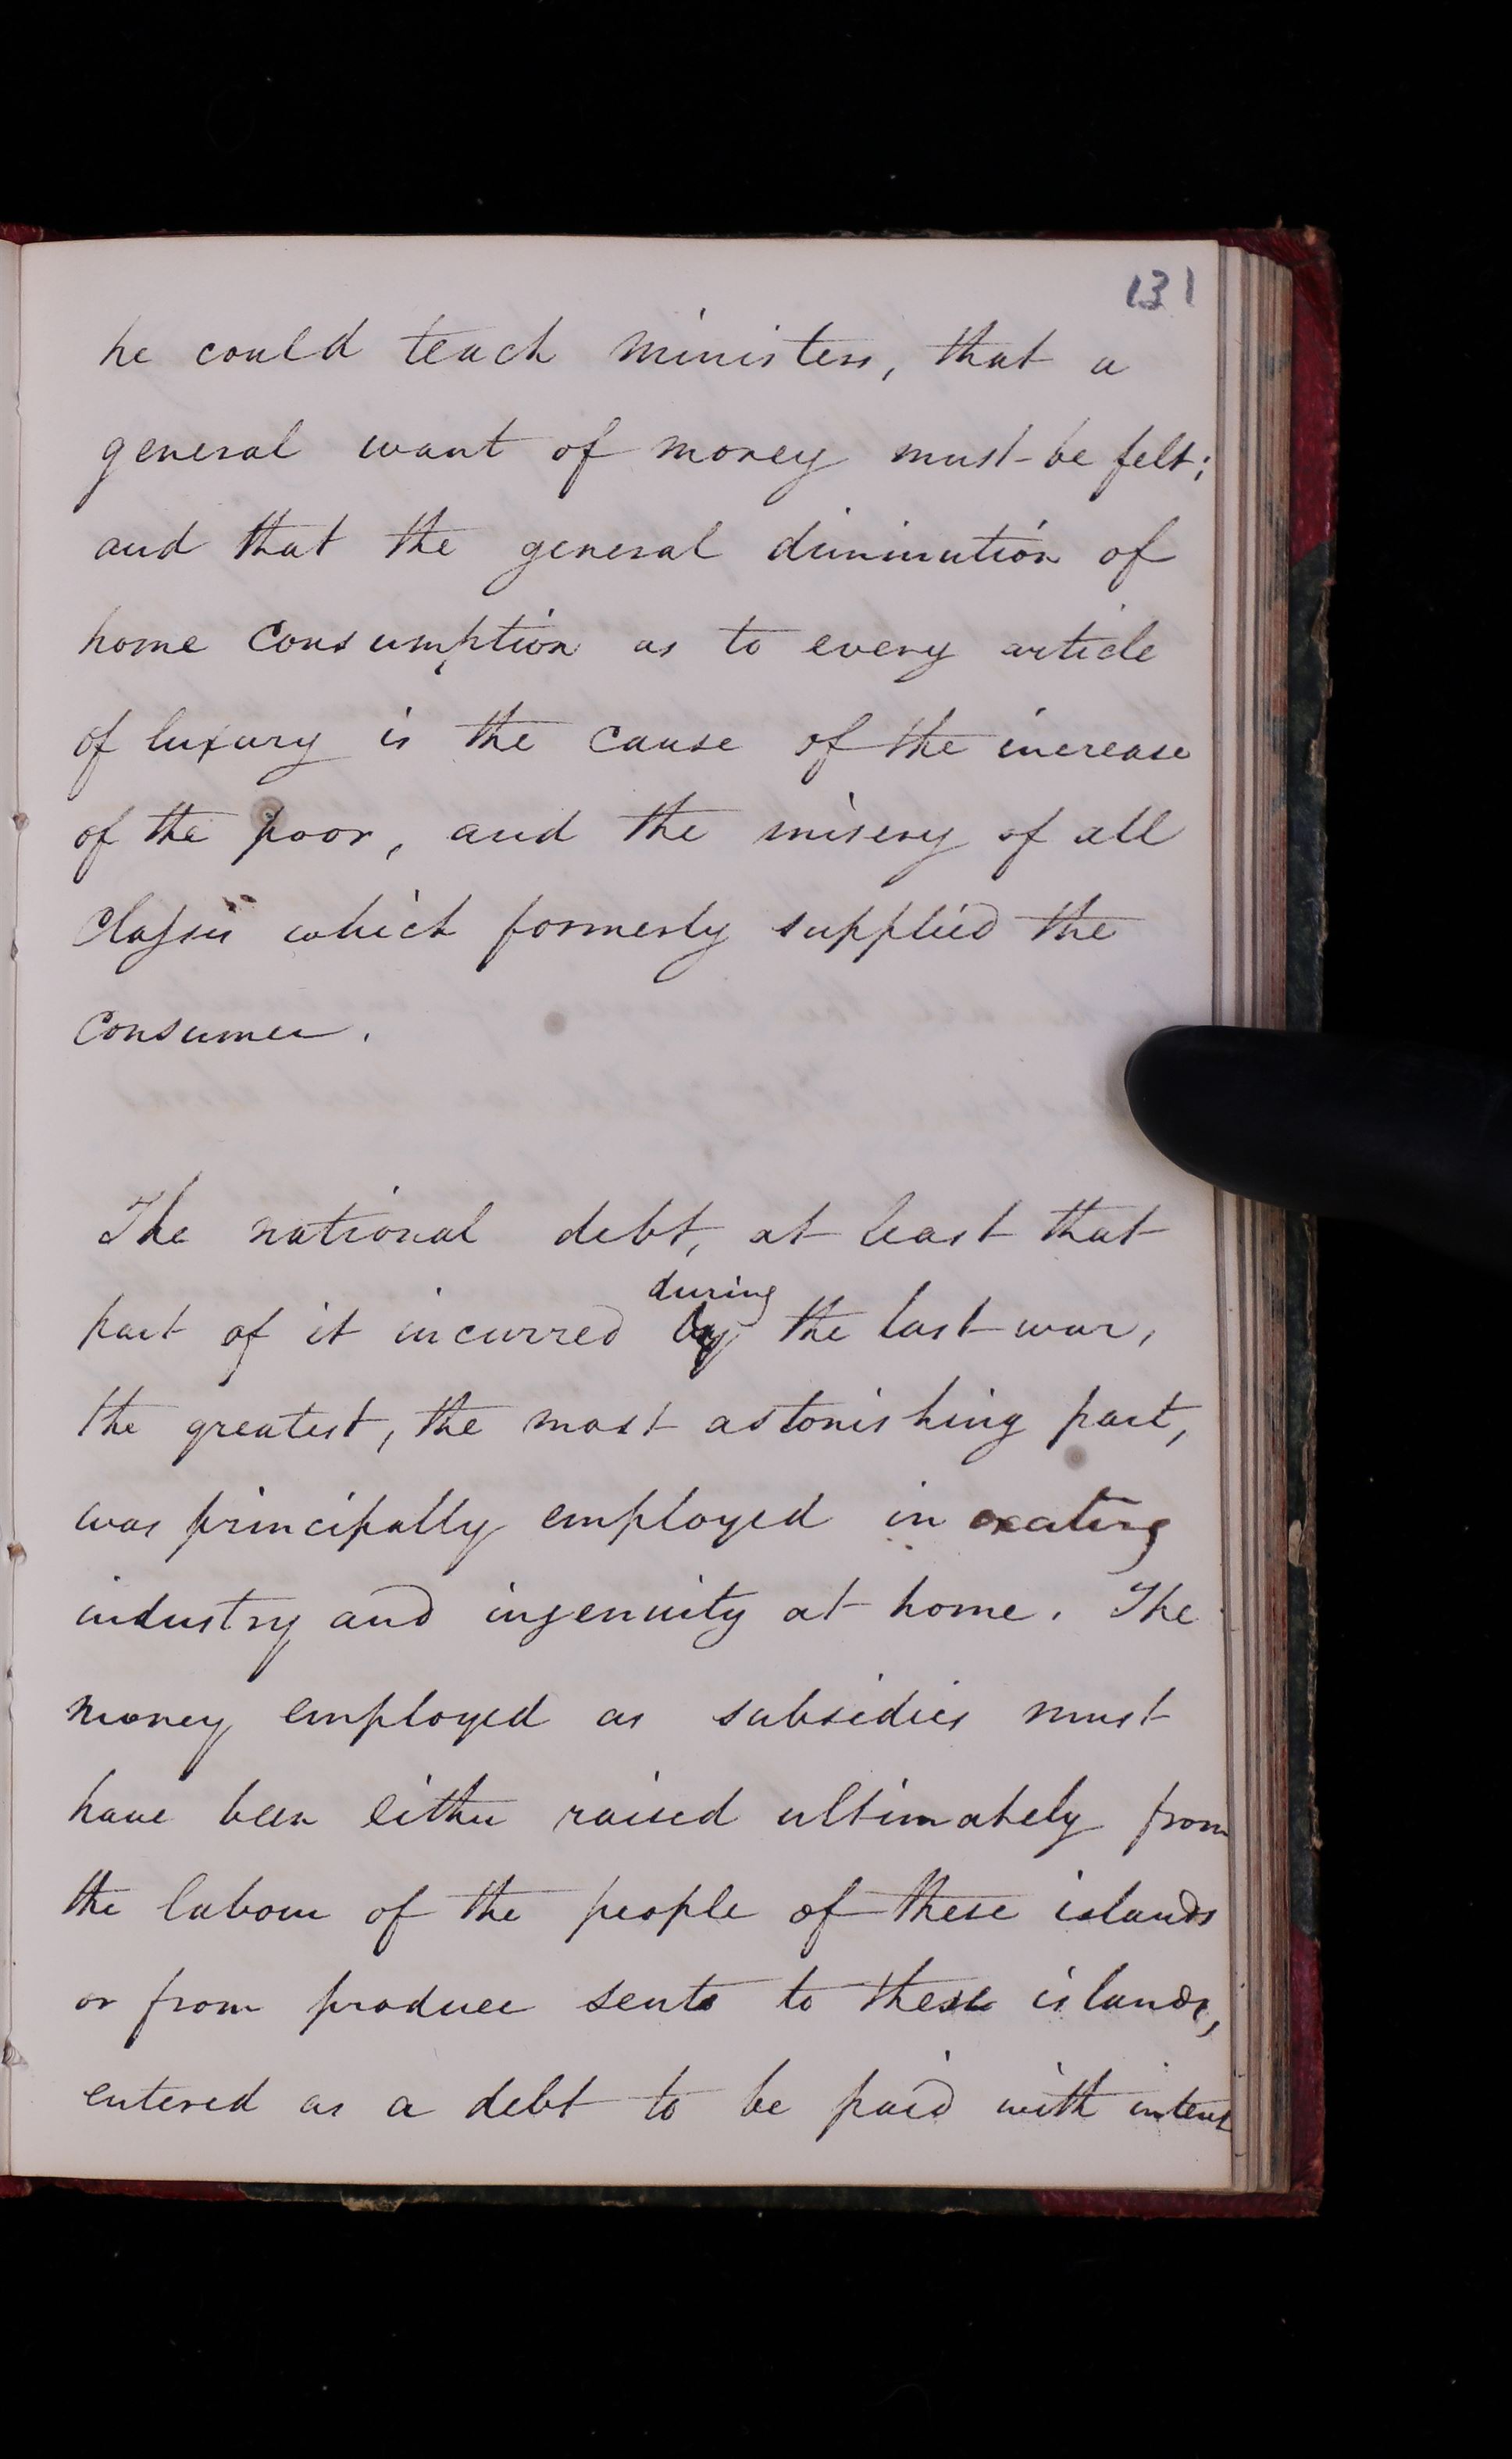 131
he could teach ministers, that a
general want of money must be felt;
and that the general diminution of
home consumption as to every article
of luxury is the cause of the increase
of the poor, and the misery of all
classes which formerly supplied the
consumer.
The national debt, at least that
during
part of it incurred by the last war,
the greatest, the most astonishing part,
was principally employed in exciting
industry and ingenuity at home. The
money employed as subsidies must
have been either raised ultimately from
the labour of the people of these islands
or from produce sent to these islands,
entered as a debt to be paid with interest